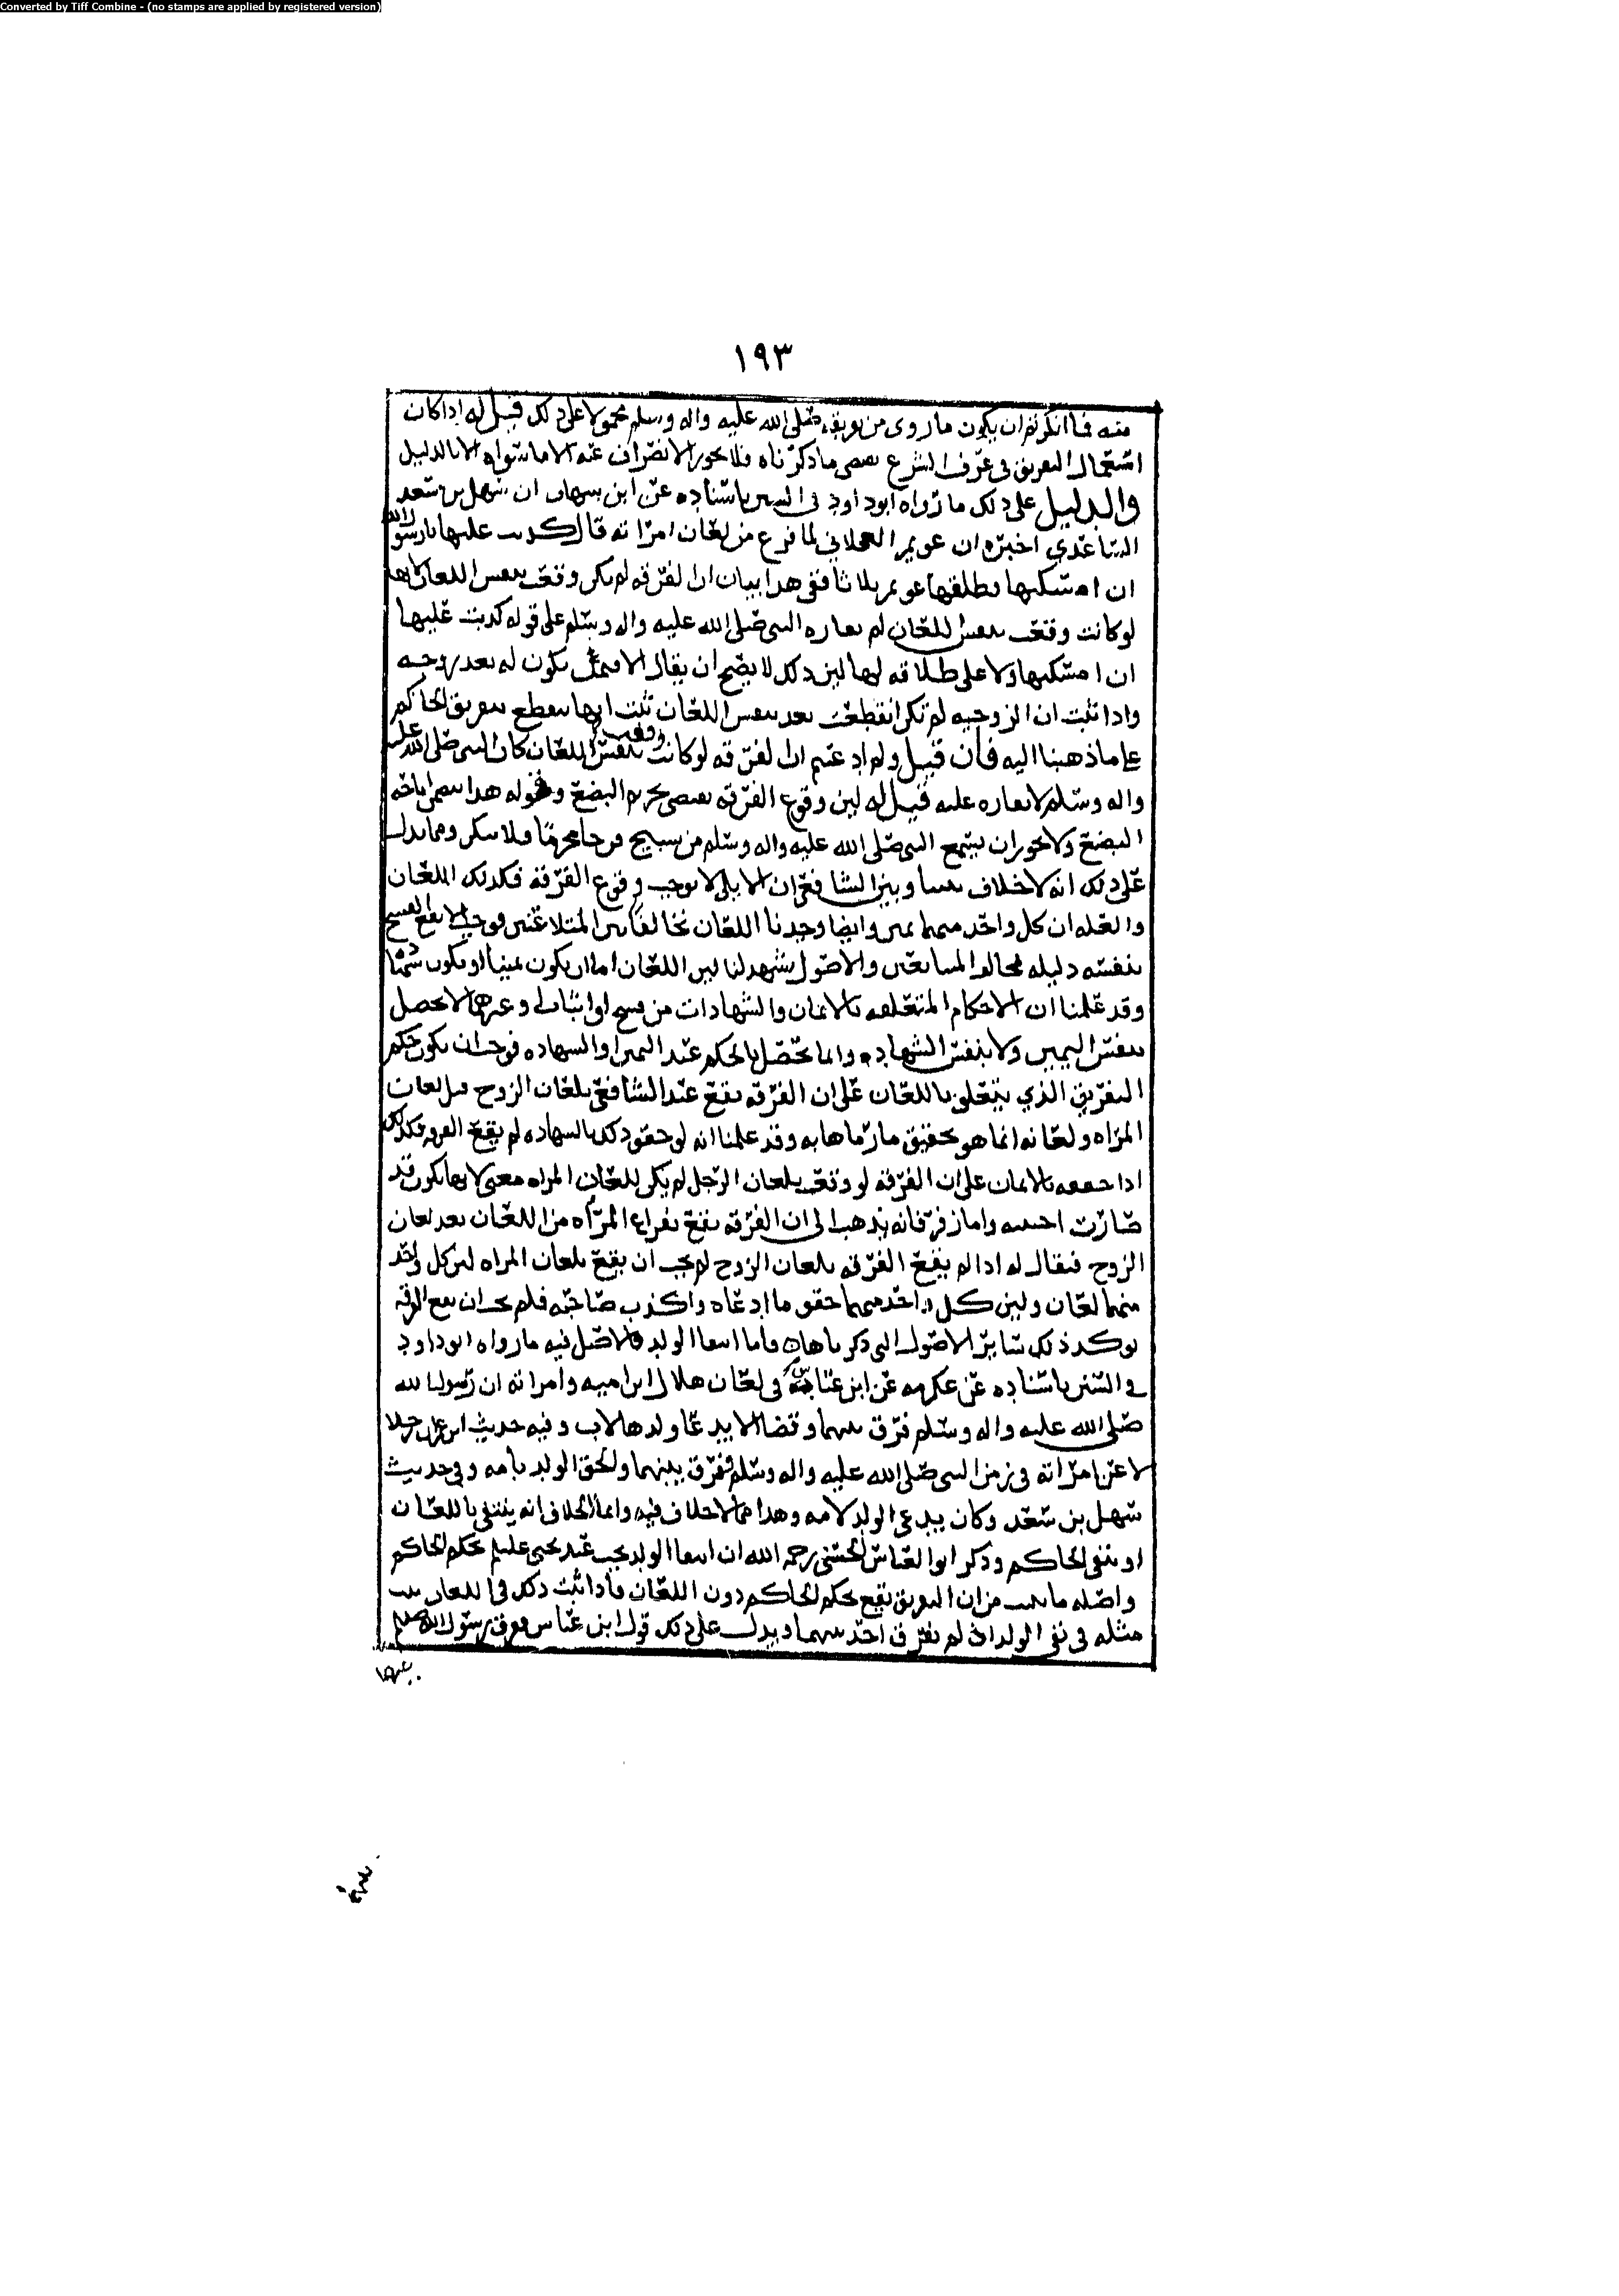 Converted by Tiff Combine - (no stamps are applied by registered version)
١٩٣
منه فما انكرتم ان يكون ما روى من تفريقه صلى الله عليه واله وسلم محمولا على ذلك قيل له اذا كان
استعمال التفريق في عرف الشرع يقتضي ما ذكرناه فلا يجوز الانصراف عنه الا ما سواه الا بالدليل
والدليل على ذلك ما رواه ابو داود في السنن باسناده عن ابن شهاب ان سهل بن سعد
الساعدي اخبره ان عويمر العجلاني لما فرغ من لعان امراته قال كذبت عليها يا رسول الله
ان امسكتها فطلقها عويمر ثلاثا ففي هذا بيان ان الفرقه لم تكن وقعت بنفس اللعان لانها
لو كانت وقعت بنفس اللعان لم يقاره النبي صلى الله عليه واله وسلم على قوله كذبت عليها
ان امسكتها ولا على طلاقه لها لين ذلك لا يصح ان يقال الا فيمن تكون له بعد زوجه
واذا ثبت ان الزوجيه لم تكن انقطعت بعد بنفس اللعان ثبت انها تنقطع بتفريق الحاكم
على ما ذهبنا اليه فان قيل ولم ادعيتم ان الفرقه لو كانت وقعت بنفس اللعان كان النبي صلى الله عليه
واله وسلم لا يقاره عليه قيل له لين وقوع الفرقه يقتضي تحريم البضع وقوله هذا يقتضي اباحه
البضع ولا يجوز ان يسمع النبي صلى الله عليه واله وسلم من يستبيح فرجا محرما فلا ينكر ومما يدل
على ذلك انه لا خلاف بيننا وبين الشافعي ان الايلى لا يوجب وقوع الفرقة فكذلك اللعان
والعله ان كل واحد منهما يمين وايضا وجدنا اللعان تخالفا بين المتلاعنين فوجب الا يقع الفسخ
بنفسه دليله تحالف المتبايعين والاصول تشهد لنا لين اللعان اما ان يكون يمينا او يكون شهادة
وقد علمنا ان الاحكام المتعلقه بالايمان والشهادات من فسخ او اثبات او غيرهما لا تحصل
بنفس اليمين ولا بنفس الشهاده وانما تحصل بالحكم عند اليمين او الشهاده فوجب ان يكون حكم
التفريق الذي يتعلق باللعان على ان الفرقه تقع عند الشافعي بلعان الزوج قبل لعان
المراه ولعانه انما هو تحقيق ما رماها به وقد علمنا انه لو حقق ذلك بالشهاده لم يقع الفرقه فكذلك
اذا حققه بالايمان على ان الفرقه لو وقعت بلعان الرجل لم يكن للعان المراه معنى لانها تكون قد
صارت اجنبيه واما زفر فانه يذهب الى ان الفرقه تقع بفراغ المراه من اللعان بعد لعان
الزوج فيقال له اذا لم يقع الفرقه بلعان الزوج لم يجب ان يقع بلعان المراه لين كل واحد
منهما لعان ولين كل واحد منهما حقق ما ادعاه واكذب صاحبه فلم يجب ان تقع الفرقه
يوكد ذلك ساير الاصول التي ذكرناها فاما انتفا الولد فالاصل فيه ما رواه ابو داود
في السنن باسناده عن عكرمه عن ابن عباس في لعان هلال ابن اميه وامراته ان رسول الله
صلى الله عليه واله وسلم فرق بينهما وقضا الا يدعا ولدها لاب وفيه حديث ابن عمر ان رجلا
لاعن امراته في زمن النبي صلى الله عليه واله وسلم ففرق بينهما والحق الولد بامه وفي حديث
سهل بن سعد وكان يدعى الولد لامه وهذا مما لا خلاف فيه وانما الخلاف انه ينتفي باللعان
او بنفي الحاكم وذكر ابو العباس الحسني رحمه الله ان انتفا الولد يجب عند يحيى عليلم بحكم الحاكم
واصله ما بينت من ان التفريق يقع بحكم الحاكم دون اللعان فاذا ثبت ذلك في اللعان ثبت
مثله في نفي الولد اذ لم يفرق احد بينهما ويدل على ذلك قول ابن عباس ففرق رسول الله صلعم
بينهما